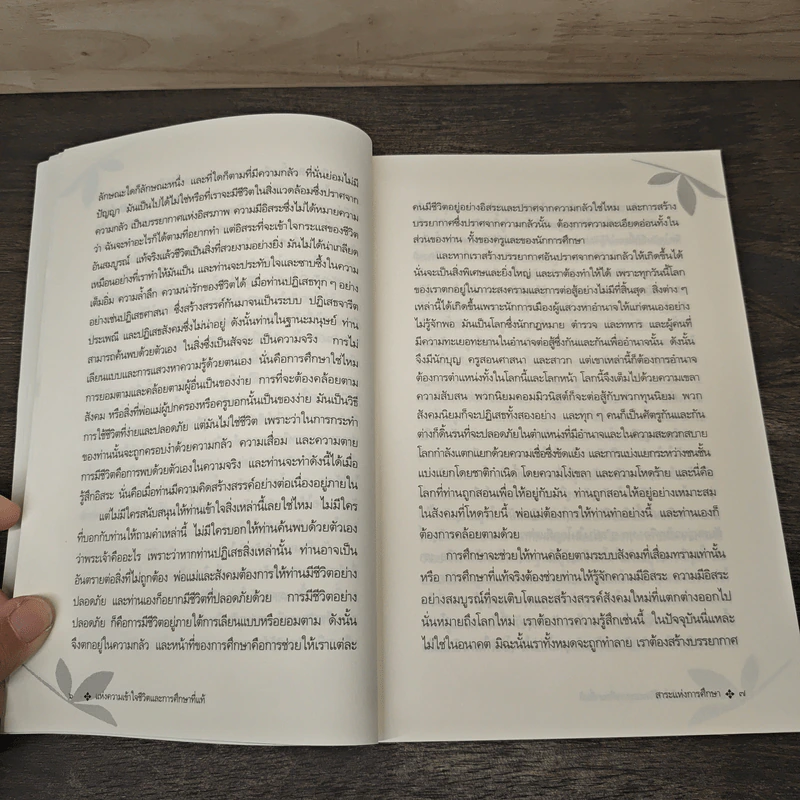 ลักษณะใดก็ลักษณะหนึ่ง และที่ใดก็ตามที่มีความกลัว ที่นั่นย่อมไม่มี
ปัญญา มันเป็นไปได้ไม่ใช่หรือที่เราจะมีชีวิตในสิ่งแวดล้อมซึ่งปราศจาก
ความกลัว เป็นบรรยากาศแห่งอิสรภาพ ความมีอิสระซึ่งไม่ได้หมายความ
ว่า ฉันจะทำอะไรก็ได้ตามที่อยากทำ แต่อิสระที่จะเข้าใจกระแสของชีวิต
อันสมบูรณ์ แท้จริงแล้วชีวิตเป็นสิ่งที่สวยงามอย่างยิ่ง มันไม่ได้น่าเกลียด
เหมือนอย่างที่เราทำให้มันเป็น และท่านจะประทับใจและซาบซึ้งในความ
เต็มอิ่ม ความล้ำลึก ความน่ารักของชีวิตได้ เมื่อท่านปฏิเสธทุก ๆ อย่าง
อย่างเช่นปฏิเสธศาสนา ซึ่งสร้างสรรค์กันมาจนเป็นระบบ ปฏิเสธจารีต
ประเพณี และปฏิเสธสังคมซึ่งไม่น่าอยู่ ดังนั้นท่านในฐานะมนุษย์ ท่าน
สามารถค้นพบด้วยตัวเอง ในสิ่งซึ่งเป็นสัจจะ เป็นความจริง การไม่
เลียนแบบและการแสวงหาความรู้ด้วยตนเอง นั่นคือการศึกษาใช่ไหม
การยอมตามและคล้อยตามผู้อื่นเป็นของง่าย การที่จะต้องคล้อยตาม
สังคม หรือสิ่งที่พ่อแม่ผู้ปกครองหรือครูบอกนั้นเป็นของง่าย มันเป็นวิธี
การใช้ชีวิตที่ง่ายและปลอดภัย แต่มันไม่ใช่ชีวิต เพราะว่าในการกระทำ
ของท่านนั้นจะถูกครอบงำด้วยความกลัว ความเสื่อม และความตาย
การมีชีวิตคือการพบด้วยตัวเองในความจริง และท่านจะทำดังนี้ได้เมื่อ
รู้สึกอิสระ นั่นคือเมื่อท่านมีความคิดสร้างสรรค์อย่างต่อเนื่องอยู่ภายใน
แต่ไม่มีใครสนับสนุนให้ท่านเข้าใจสิ่งเหล่านี้เลยใช่ไหม ไม่มีใคร
ที่บอกกับท่านให้ถามคำเหล่านี้ ไม่มีใครบอกให้ท่านค้นพบด้วยตัวเอง
ว่าพระเจ้าคืออะไร เพราะว่าหากท่านปฏิเสธสิ่งเหล่านั้น ท่านอาจเป็น
อันตรายต่อสิ่งที่ไม่ถูกต้อง พ่อแม่และสังคมต้องการให้ท่านมีชีวิตอย่าง
ปลอดภัย และท่านเองก็อยากมีชีวิตที่ปลอดภัยด้วย การมีชีวิตอย่าง
ปลอดภัย ก็คือการมีชีวิตอยู่ภายใต้การเลียนแบบหรือยอมตาม ดังนั้น
จึงตกอยู่ในความกลัว และหน้าที่ของการศึกษาคือการช่วยให้เราแต่ละ
๖ ✤ แห่งความเข้าใจชีวิตและการศึกษาที่แท้
คนมีชีวิตอยู่อย่างอิสระและปราศจากความกลัวใช่ไหม และการสร้าง
บรรยากาศซึ่งปราศจากความกลัวนั้น ต้องการความละเอียดอ่อนทั้งใน
ส่วนของท่าน ทั้งของครูและของนักการศึกษา
และหากเราสร้างบรรยากาศอันปราศจากความกลัวให้เกิดขึ้นได้
นั่นจะเป็นสิ่งพิเศษและยิ่งใหญ่ และเราต้องทำให้ได้ เพราะทุกวันนี้โลก
ของเราตกอยู่ในภาวะสงครามและการต่อสู้อย่างไม่มีที่สิ้นสุด สิ่งต่าง ๆ
เหล่านี้ได้เกิดขึ้นเพราะนักการเมืองผู้แสวงหาอำนาจให้แก่ตนเองอย่าง
ไม่รู้จักพอ มันเป็นโลกซึ่งนักกฎหมาย ตำรวจ และทหาร และผู้คนที่
มีความทะเยอทะยานในอำนาจต่อสู้ซึ่งกันและกันเพื่ออำนาจนั้น ดังนั้น
จึงมีนักบุญ ครูสอนศาสนา และสาวก แต่เขาเหล่านี้ก็ต้องการอำนาจ
ต้องการตำแหน่งทั้งในโลกนี้และโลกหน้า โลกนี้จึงเต็มไปด้วยความเขลา
ความสับสน พวกนิยมคอมมิวนิสต์ก็จะต่อสู้กับพวกทุนนิยม พวก
สังคมนิยมก็จะปฏิเสธทั้งสองอย่าง และทุก ๆ คนก็เป็นศัตรูกันและกัน
ต่างก็ดิ้นรนที่จะปลอดภัยในตำแหน่งที่มีอำนาจและในความสะดวกสบาย
โลกกำลังแตกแยกด้วยความเชื่อซึ่งขัดแย้ง และการแบ่งแยกระหว่างชนชั้น
แบ่งแยกโดยชาติกำเนิด โดยความโง่เขลา และความโหดร้าย และนี่คือ
โลกที่ท่านถูกสอนเพื่อให้อยู่กับมัน ท่านถูกสอนให้อยู่อย่างเหมาะสม
ในสังคมที่โหดร้ายนี้ พ่อแม่ต้องการให้ท่านทำอย่างนี้ และท่านเองก็
ต้องการคล้อยตามด้วย
การศึกษาจะช่วยให้ท่านคล้อยตามระบบสังคมที่เสื่อมทรามเท่านั้น
หรือ การศึกษาที่แท้จริงต้องช่วยท่านให้รู้จักความมีอิสระ ความมีอิสระ
อย่างสมบูรณ์ที่จะเติบโตและสร้างสรรค์สังคมใหม่ที่แตกต่างออกไป
นั่นหมายถึงโลกใหม่ เราต้องการความรู้สึกเช่นนี้ ในปัจจุบันนี้แหละ
ไม่ใช่ในอนาคต มิฉะนั้นเราทั้งหมดจะถูกทำลาย เราต้องสร้างบรรยากาศ
สาระแห่งการศึกษา ✤ ๗